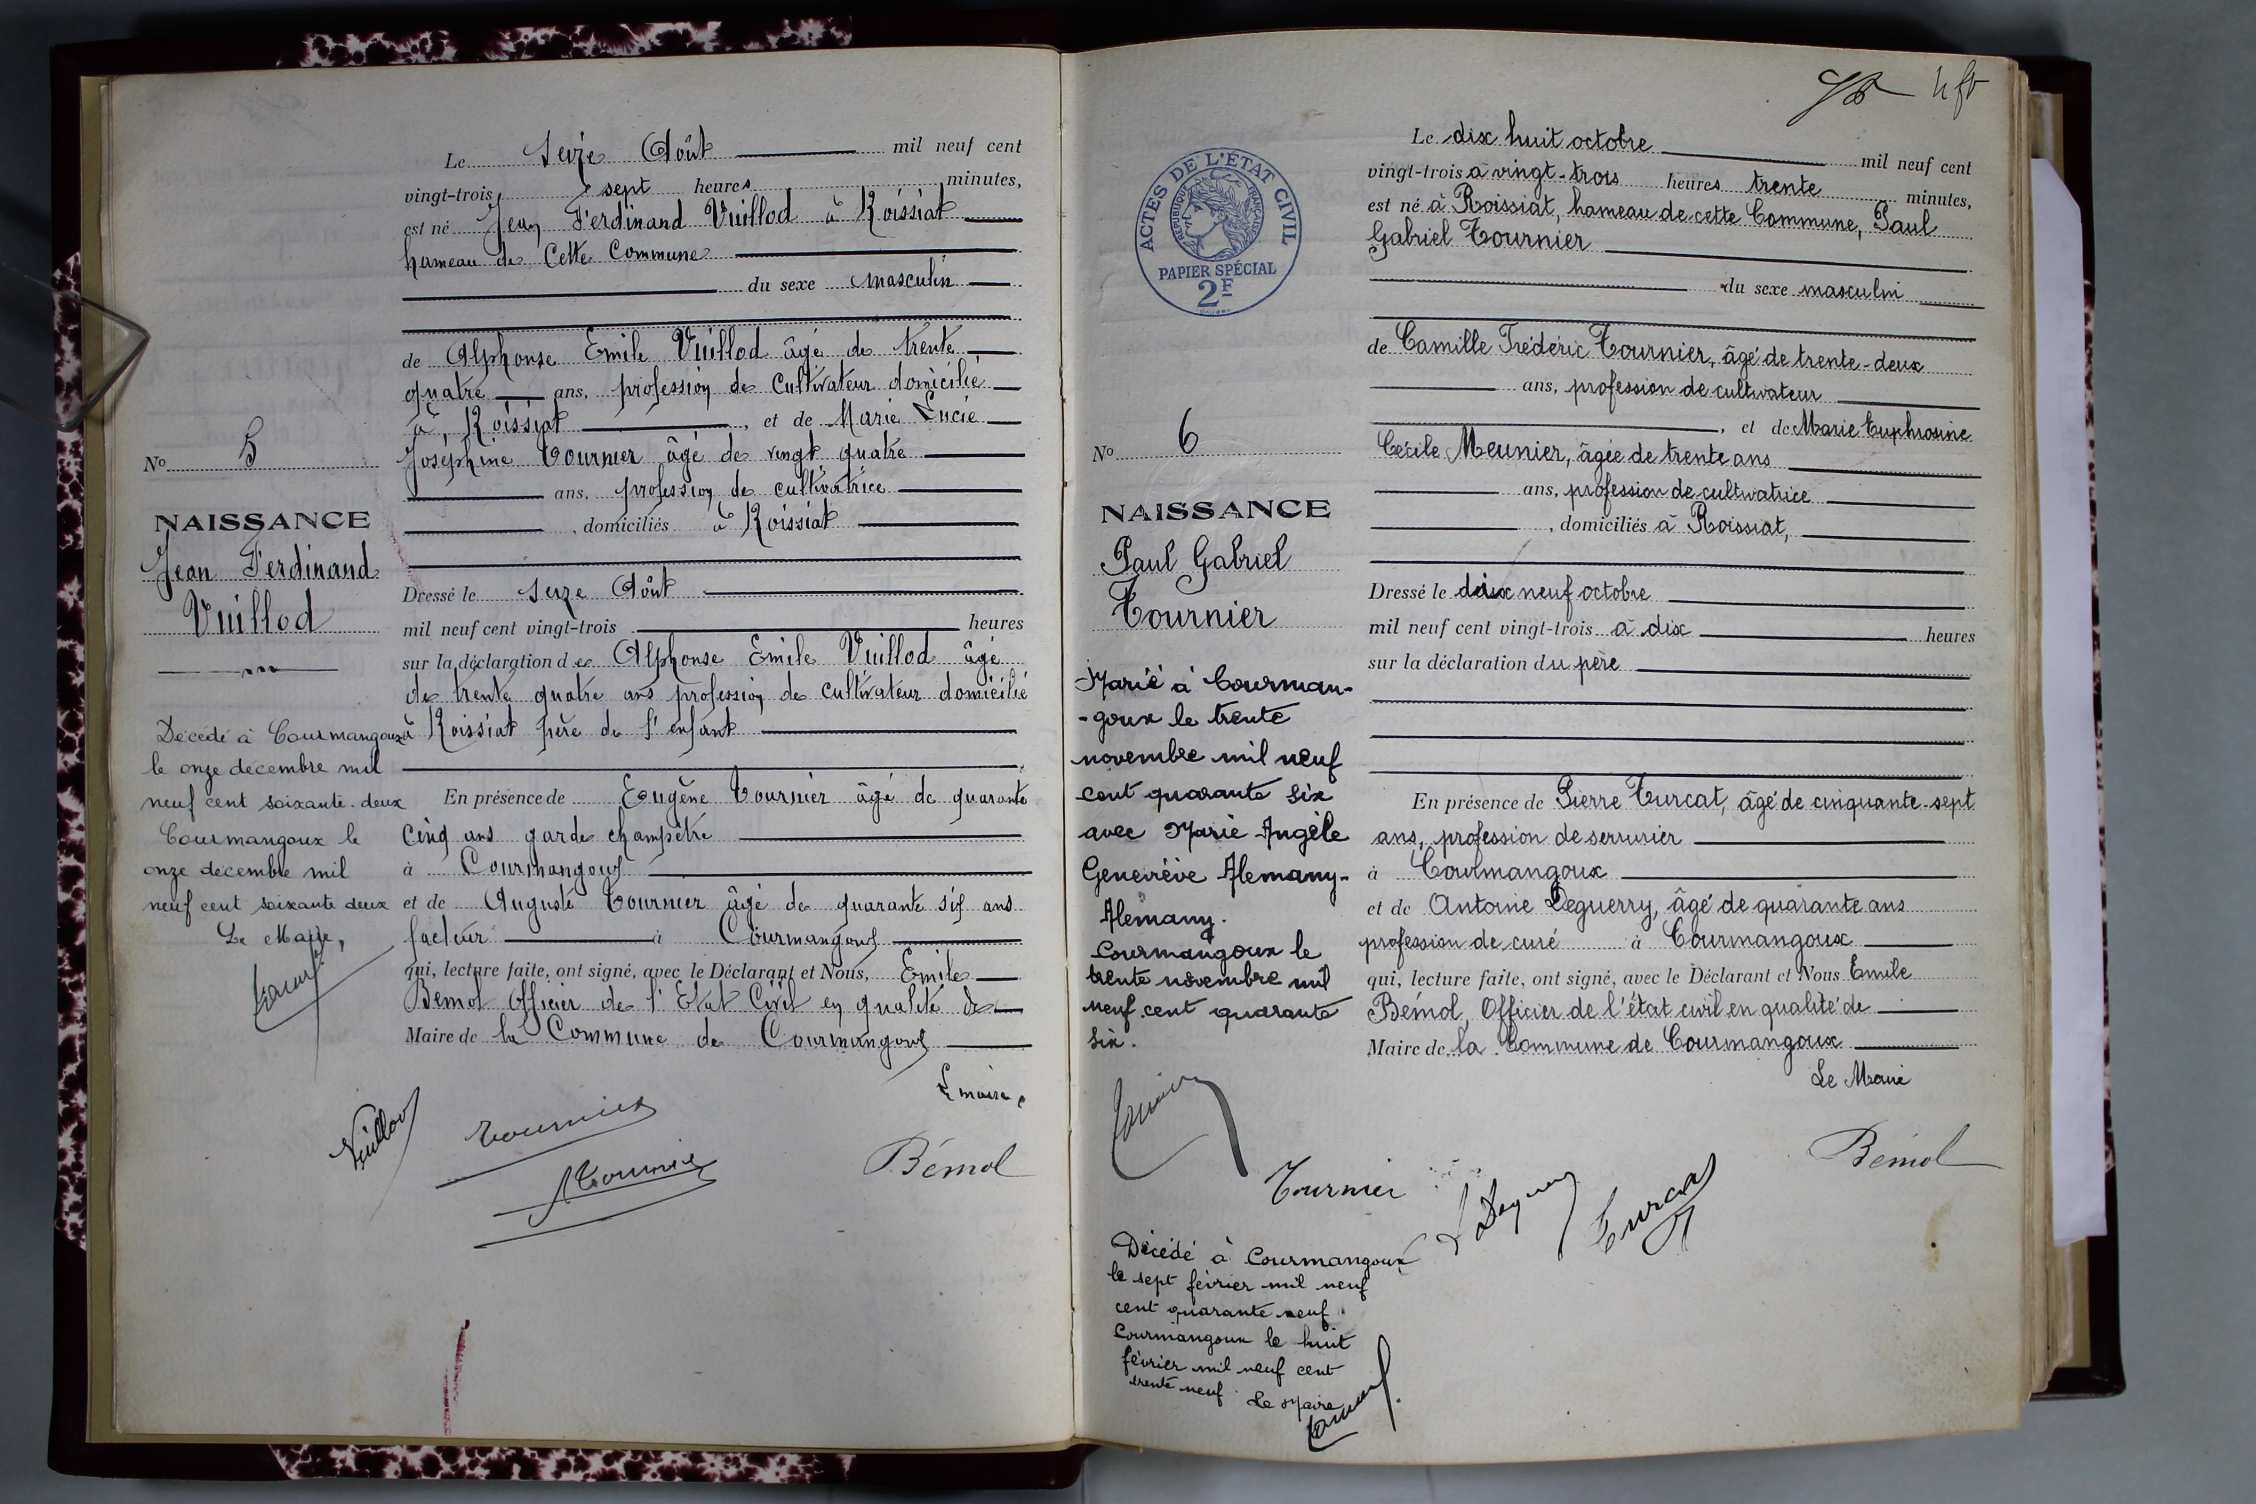 Le seize Août mil neuf cent
vingt-trois, sept heures minutes,
est né Jean Ferdinand Vuillod à Roissiat
hameau de Cette Commune
du sexe masculin
de Alphonse Emile Vuillod âgé de trente
quatre ans, profession de cultivateur domicilié
à Roissiat, et de Marie Lucie
Joséphine Tournier âgé de vingt quatre
ans, profession de cultivatrice
, domiciliés à Roissiat
Dressé le seize Août
mil neuf cent vingt-trois heures
sur la déclaration de Alphonse Emile Vuillod âgé
de trente quatre ans profession de cultivateur domicilié
à Roissiat père de l'enfant
En présence de Eugène Tournier âgé de quarante
cinq ans garde champêtre
à Courmangoux
et de Auguste Tournier âgé de quarante six ans
facteur à Courmangoux
qui, lecture faite, ont signé, avec le Déclarant et Nous, Emile
Bémol Officier de l'Etat Civil en qualité de
Maire de la Commune de Courmangoux
L maire,
Vuillod
Tournier
ATournier
Bémol
No 5
NAISSANCE
Jean Ferdinand
Vuillod
Décédé à Courmangoux
le onze décembre mil
neuf cent soixante-deux
Courmangoux le
onze décembre mil
neuf cent soixante deux
Le Maire,
ACTES DE L'ETAT CIVIL
REPUBLIQUE FRANÇAISE
PAPIER SPÉCIAL
2F
No 6
NAISSANCE
Paul Gabriel
Tournier
Marié à Courman-
-goux le trente
novembre mil neuf
cent quarante six
avec Marie Angèle
Geneviève Alemany-
Alemany.
Courmangoux le
trente novembre mil
neuf cent quarante
six.
Le dix huit octobre mil neuf cent
vingt-trois à vingt-trois heures trente minutes,
est né à Roissiat, hameau de cette Commune, Paul
Gabriel Tournier
du sexe masculin
de Camille Frédéric Tournier, âgé de trente-deux
ans, profession de cultivateur
, et de Marie Euphrosine
Cécile Meunier, âgée de trente ans
ans, profession de cultivatrice
, domiciliés à Roissiat,
Dressé le dix neuf octobre
mil neuf cent vingt-trois à dix heures
sur la déclaration du père
En présence de Pierre Turcat, âgé de cinquante-sept
ans, profession de serrurier
à Courmangoux
et de Antoine Deguerry, âgé de quarante ans
profession de curé à Courmangoux
qui, lecture faite, ont signé, avec le Déclarant et Nous Emile
Bémol, Officier de l'état civil en qualité de
Maire de la Commune de Courmangoux
Le Maire
Bémol
Tournier
Turcat
Décédé à Courmangoux
le sept février mil neuf
cent quarante neuf.
Courmangoux le huit
février mil neuf cent
trente neuf. Le Maire